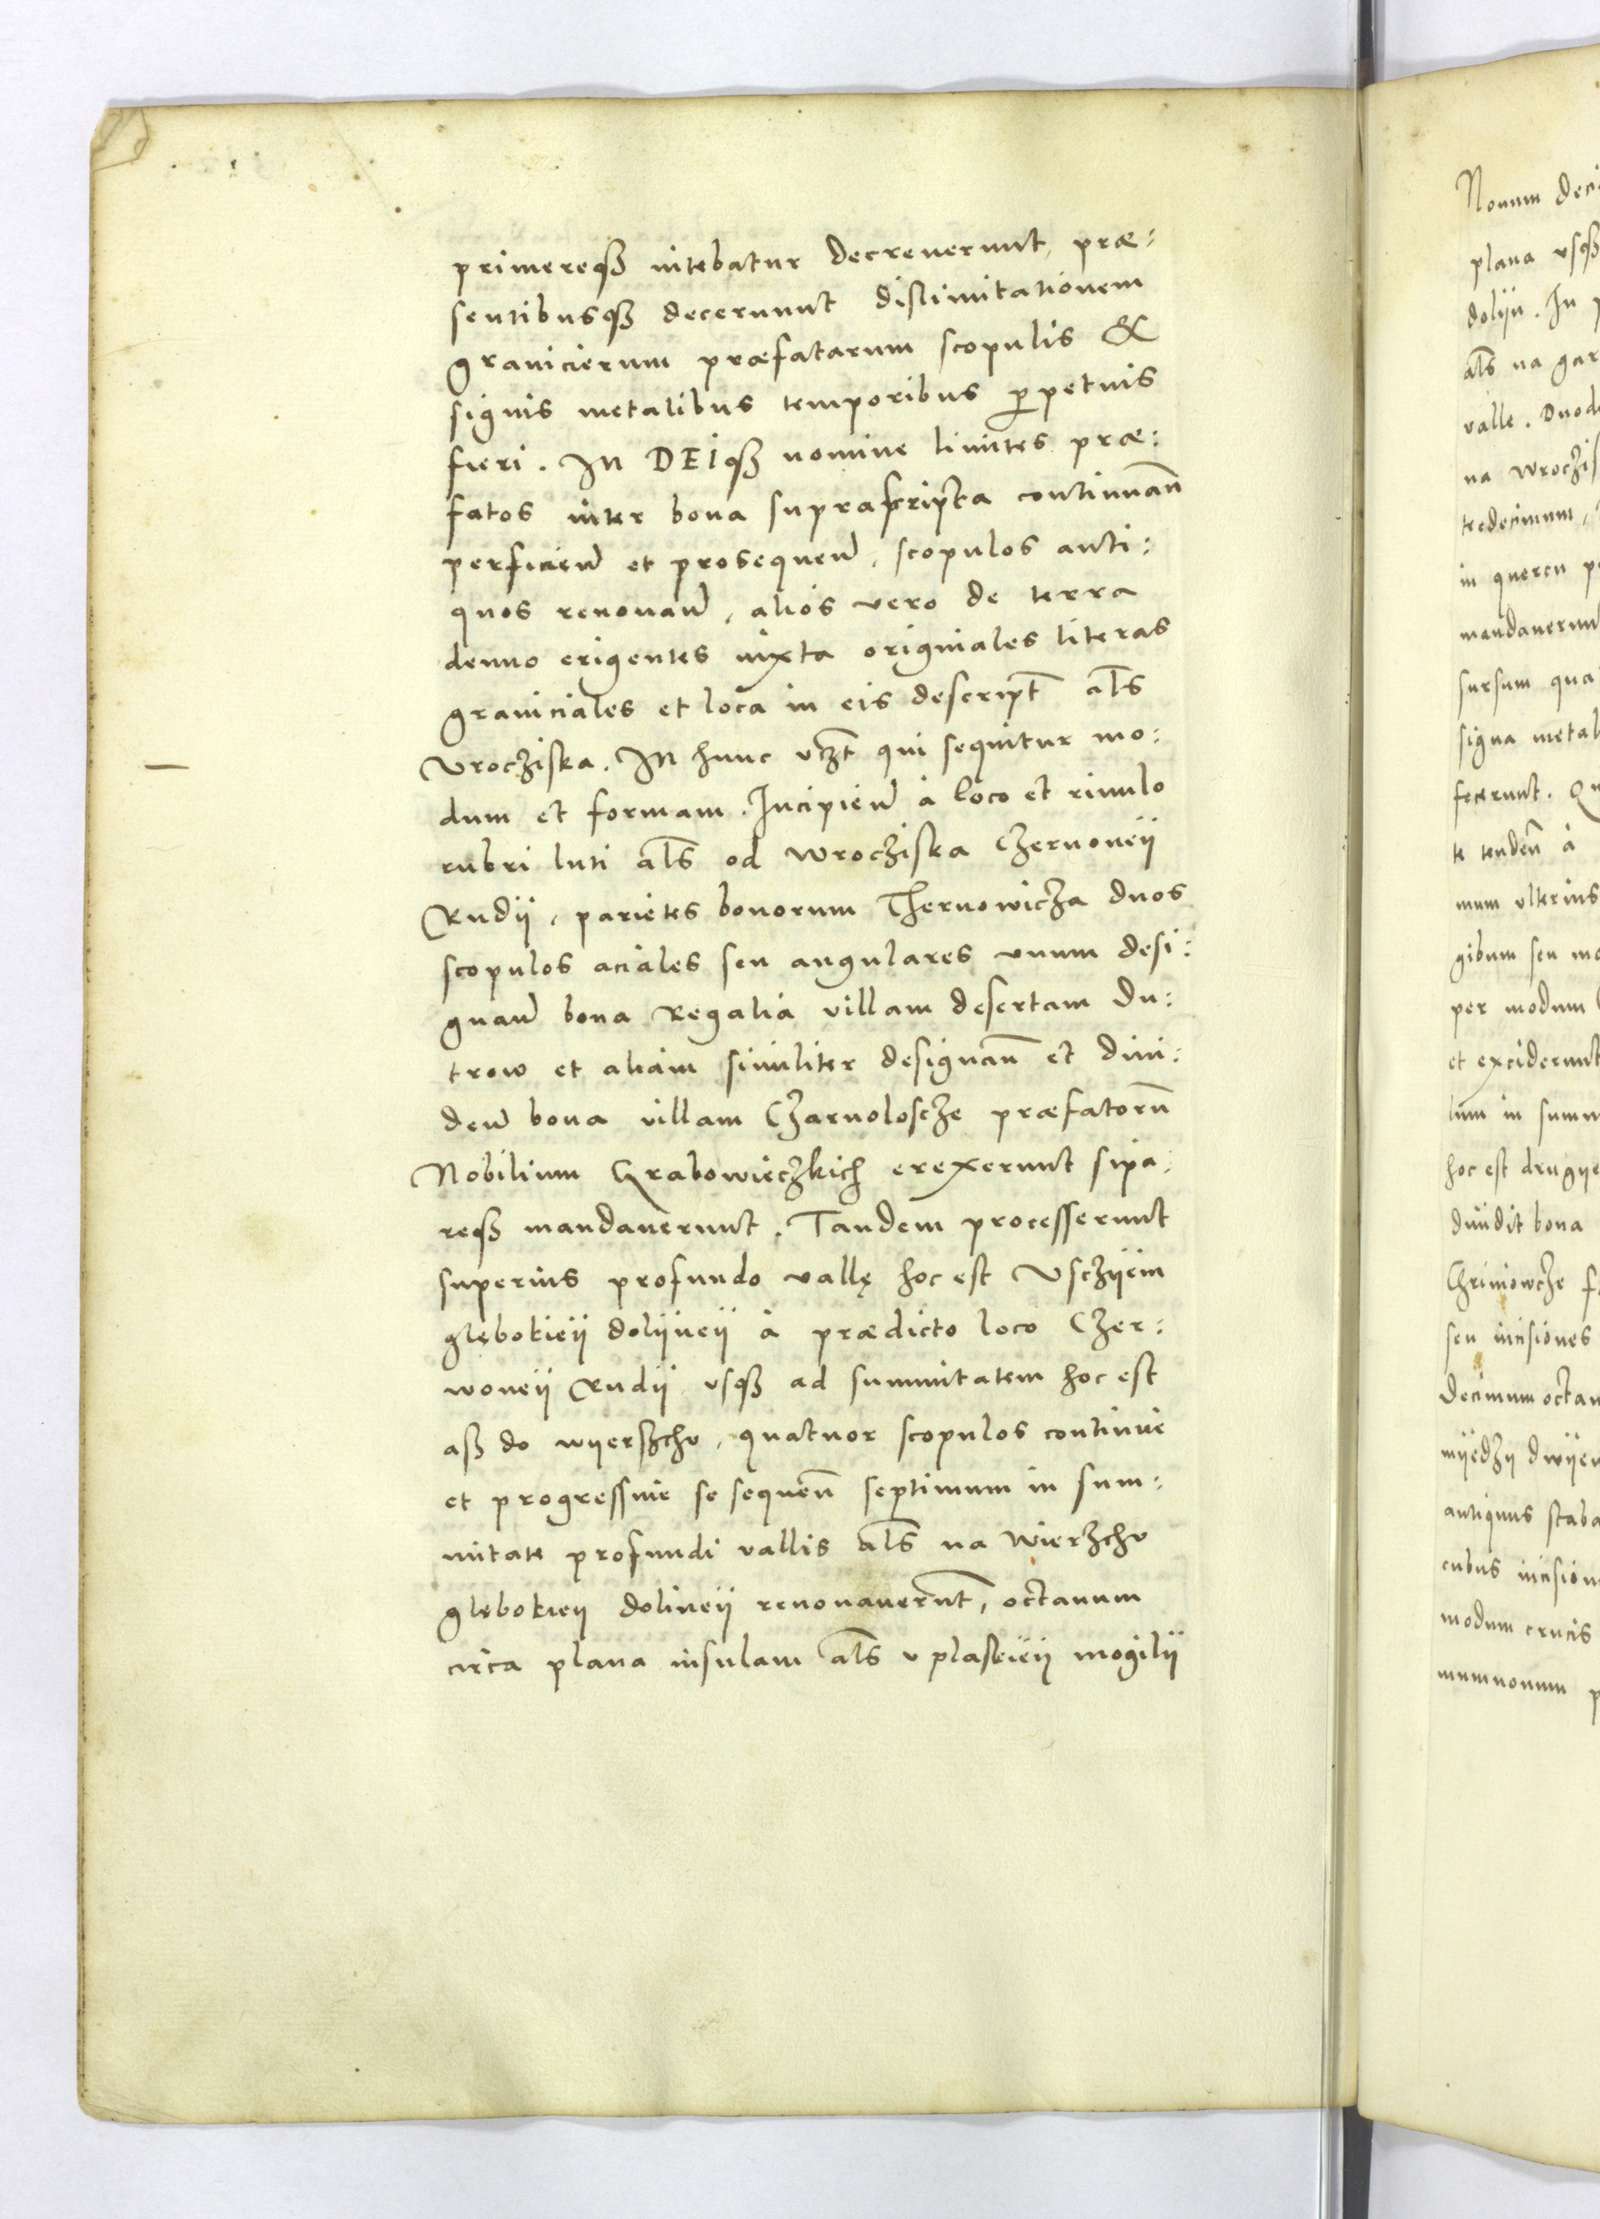 primereqȝ nitebatur decreuerunt, præ:
sentibusqȝ decernunt dislimitationem
granicierum præfatarum scopulis &
signis metalibus temporibus ꝑpetuis
fieri. IN DEIqȝ nomine limites præ:
fatos inter bona suprascripta continuañ
perficień et prosequeń, scopulos anti:
quos renouań, alios vero de terra
denuo erigentes iuxta originales literas
graniciales et loca in eis descript̃ al̃s
Vrocziska. IN hunc vȝt̃ qui sequitur mo:
dum et formam. Incipień à loco et riuulo
rubri luti al̃s od wrocziska Czerwoneÿ
Rudÿ, parietes bonorum Thernowicza duos
scopulos aciales seu angulares vnum desi:
gnań bona Regalia villam desertam Du:
trow et aliam similiter designañ et diui:
deń bona villam Czarnoloscze præfatorũ
Nobilium Grabowieczkich erexerunt sipa:
reqȝ mandauerunt. Tandem processerunt
superius profundo vallę hoc est Vsczÿem
glębokieÿ dolÿneÿ à prædicto loco Czer:
woneÿ Rudÿ vsqȝ ad summitatem hoc est
aß do wyerzchv, quatuor scopulos continue
et progressiue se sequeñ septimum in sum:
mitate profundi vallis al̃s na wierzchv
glębokieÿ dolineÿ renouauerũt, octauum
circa plana insulam al̃s v plaskieÿ mogilÿ
Nouum deci
plana vsqȝ
dolÿn. In
al̃s na gar
valle. Duod
na wroczis
tredecimum,
in quercu p
mandauerun
sursum qua
signa metal
fecerunt. Qu
te tendeñ à
mum vlterius
gibum seu mo
per modum
et exciderunt
lum in summ
hoc est drugye
diuidit bona
Chriniowcze f
seu incisiones
decimum octau
mÿedzÿ dwÿem
antiquus staba
cubus incision
modum crucis
mumnonum p